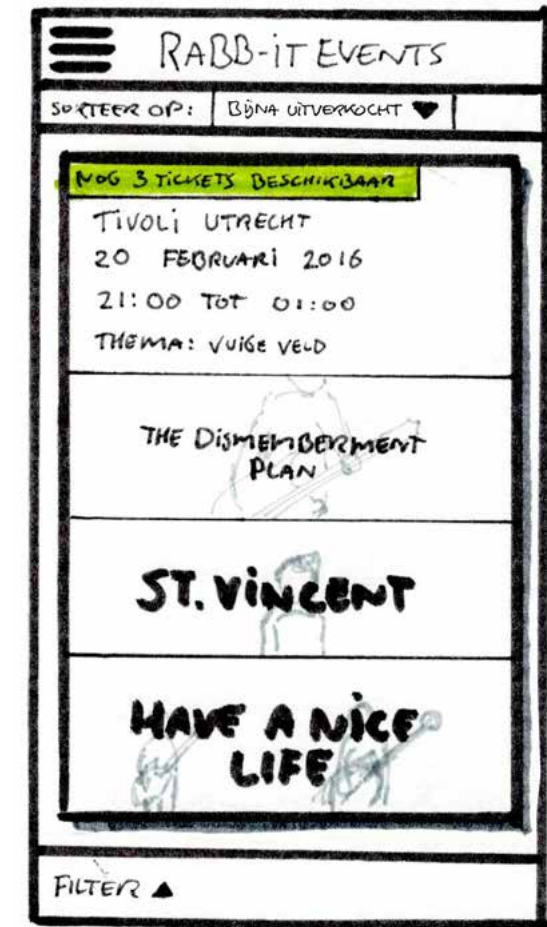 RABB-IT EVENTS
SORTEER OP: BIJNA UITVERKOCHT
NOG 3 TICKETS BESCHIKBAAR
TIVOLI UTRECHT
20 FEBRUARI 2016
21:00 TOT 01:00
THEMA: VUIGE VELD
THE DISMEMBERMENT
PLAN
ST. VINCENT
HAVE A NICE
LIFE
FILTER